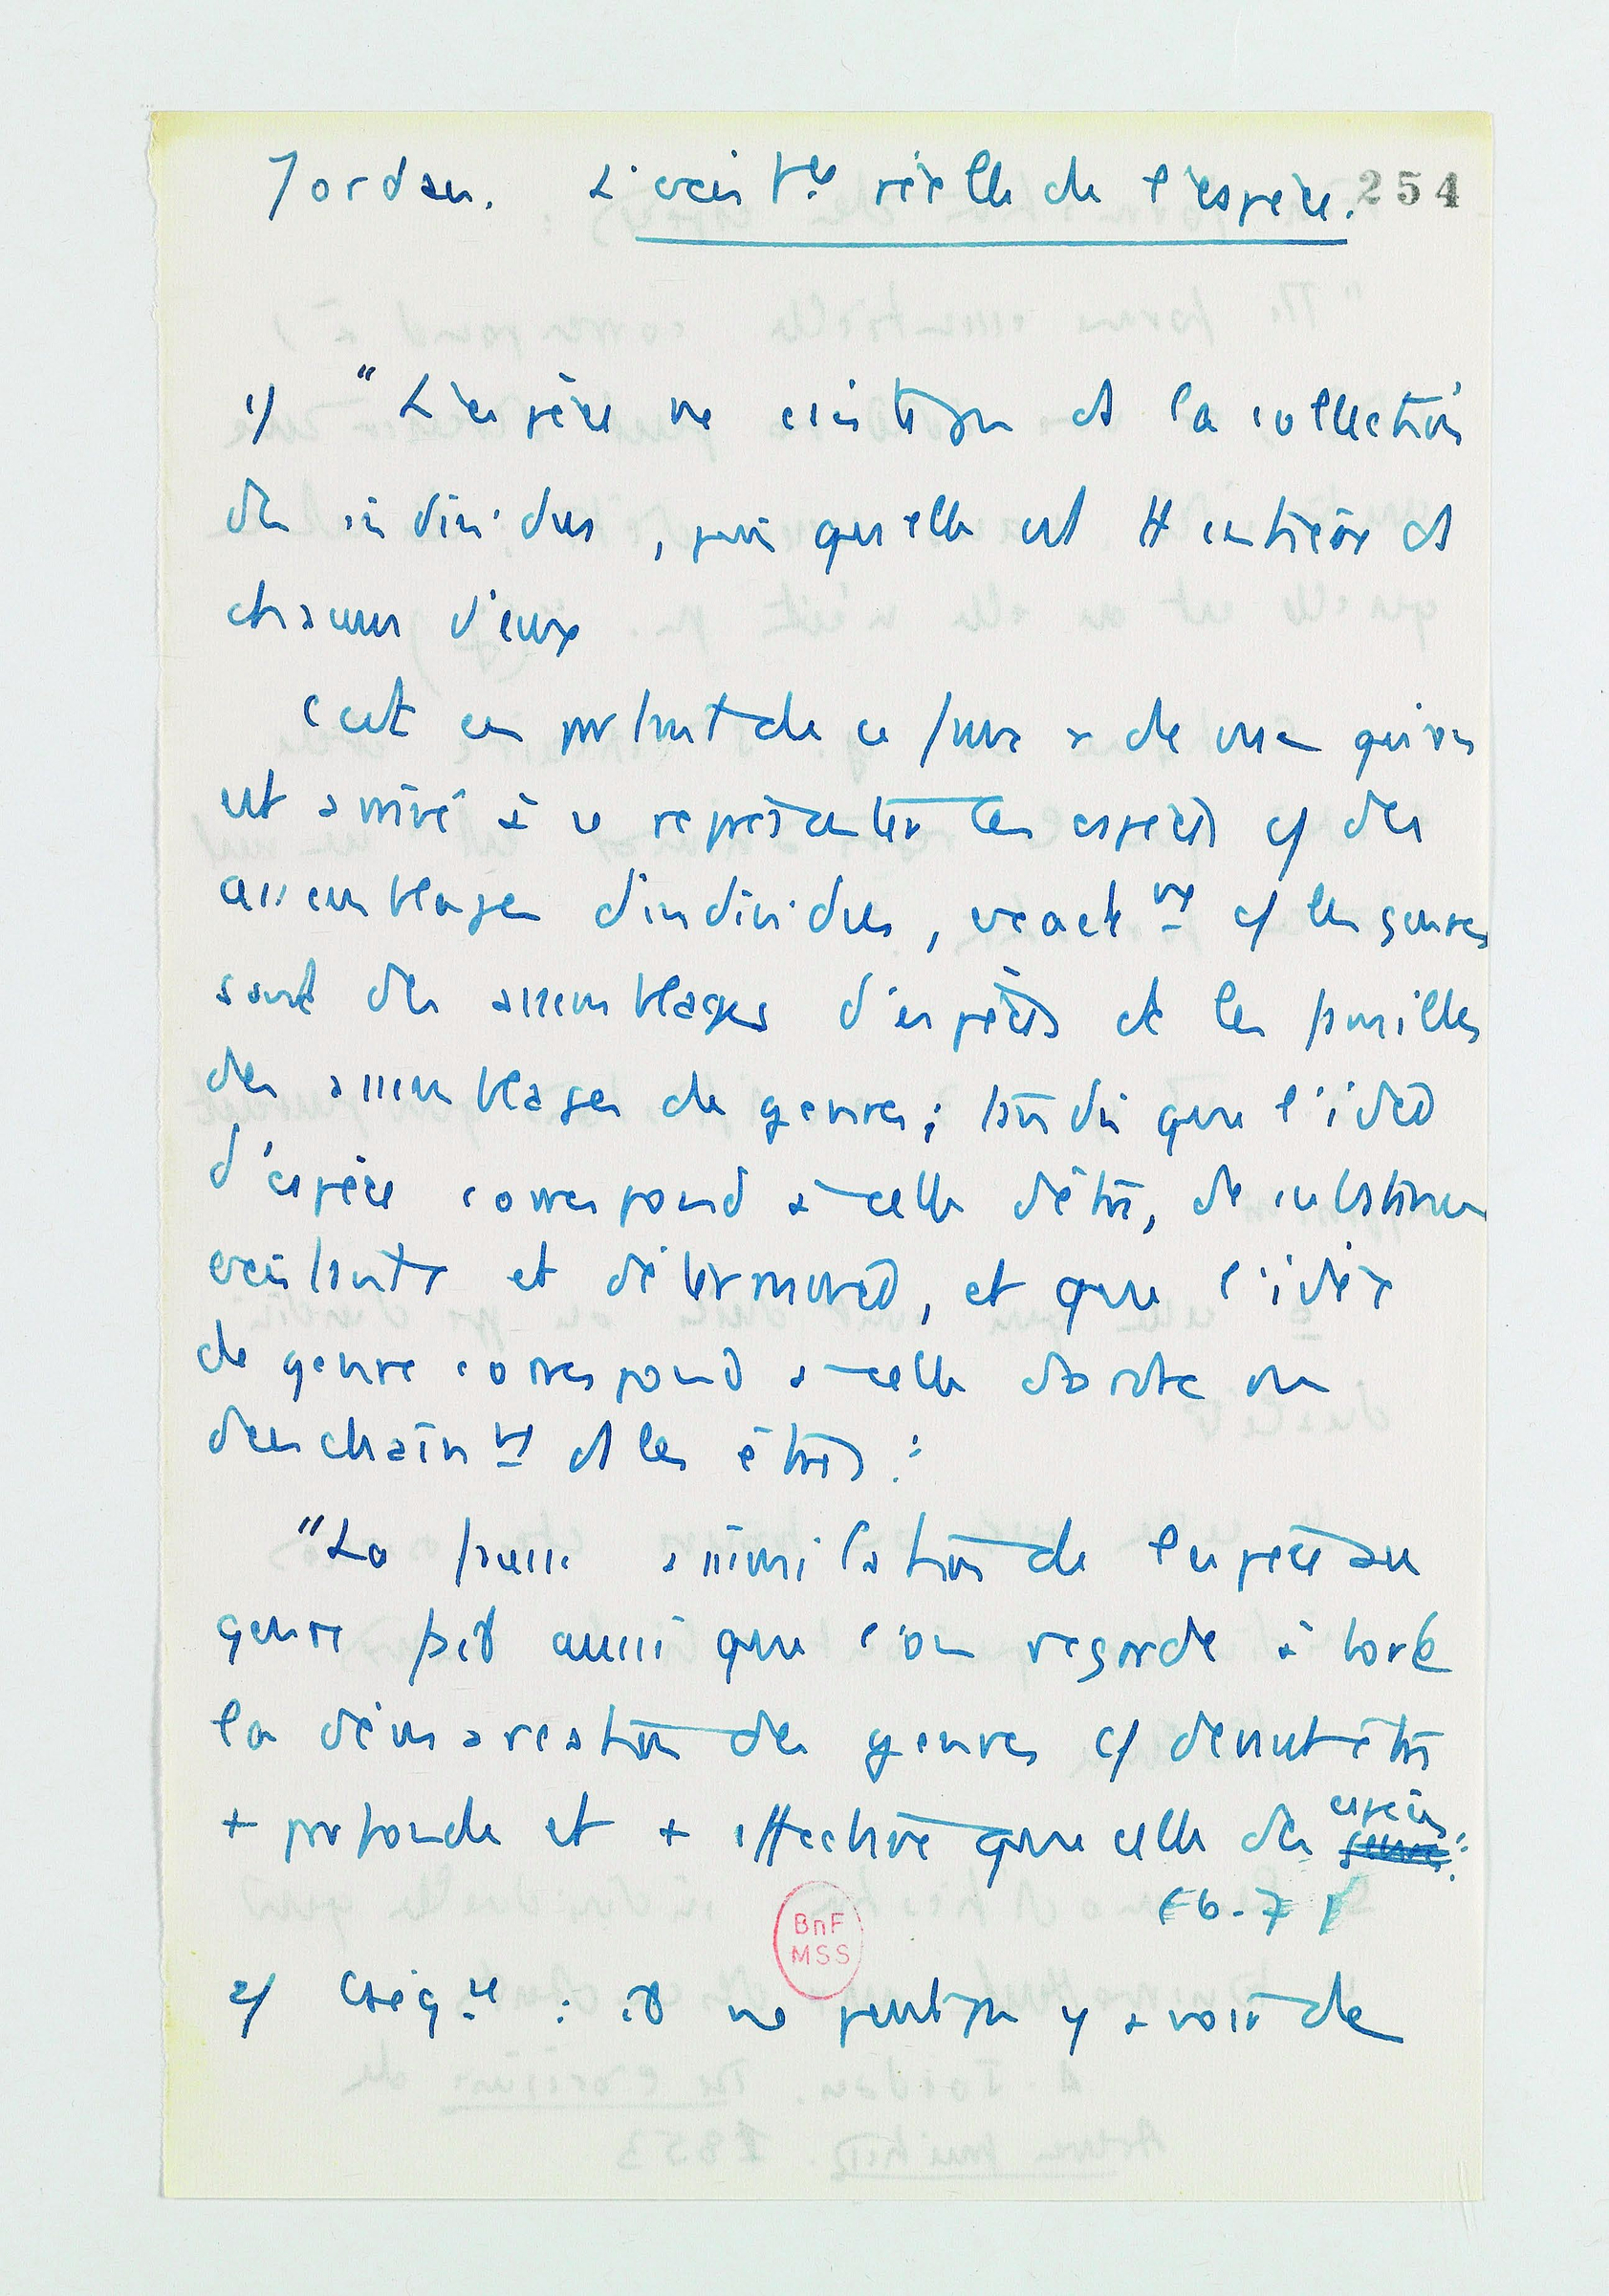 Jordan. L'exist.ce réelle de l'espèce. 254
1/ "L'espèce ne consiste pas ds la collection
des individus, puisqu'elle est tt entière ds
chacun d'eux
C'est en partant de ce faux de vue qu'on
est arrivé à se représenter les espèces c/ des
assemblages d'individus, exactemt c/ les genres
sont des assemblages d'espèces et les familles
des assemblages de genres; tandis que l'idée
d'espèce correspond à celle d'être, de substance
existante et déterminée, et que l'idée
de genre correspond à celle d'ordre ou
d'enchaînmt ds les êtres :
"La fausse assimilation de l'espèce au
genre fait aussi que l'on regarde à tort
la démarcation des genres c/ devant être
+ profonde et + effective que celle des espèces :
(6-7)
BnF
MSS
2/ Cséq.ce : il ne peut pas y avoir de